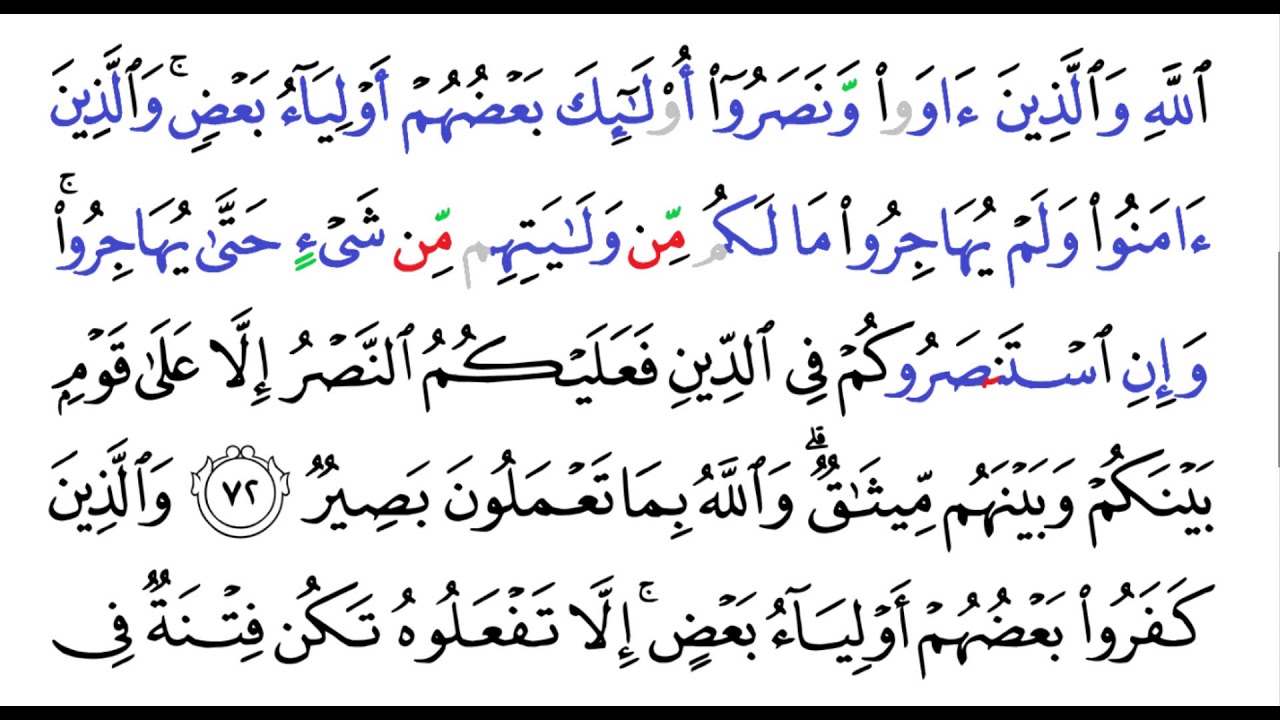 ٱللَّهِ وَٱلَّذِينَ ءَاوَوا۟ وَّنَصَرُوٓا۟ أُو۟لَـٰٓئِكَ بَعْضُهُمْ أَوْلِيَآءُ بَعْضٍ ۚ وَٱلَّذِينَ
ءَامَنُوا۟ وَلَمْ يُهَاجِرُوا۟ مَا لَكُم مِّن وَلَـٰيَتِهِم مِّن شَىْءٍ حَتَّىٰ يُهَاجِرُوا۟ ۚ
وَإِنِ ٱسْتَنصَرُوكُمْ فِى ٱلدِّينِ فَعَلَيْكُمُ ٱلنَّصْرُ إِلَّا عَلَىٰ قَوْمٍۭ
بَيْنَكُمْ وَبَيْنَهُم مِّيثَـٰقٌ ۗ وَٱللَّهُ بِمَا تَعْمَلُونَ بَصِيرٌ ٧٢ وَٱلَّذِينَ
كَفَرُوا۟ بَعْضُهُمْ أَوْلِيَآءُ بَعْضٍ ۚ إِلَّا تَفْعَلُوهُ تَكُن فِتْنَةٌ فِى